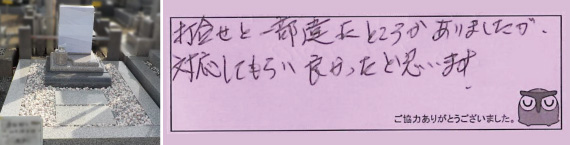 打合せと一部違ったところがありましたが、
対応してもらい良かったと思います
ご協力ありがとうございました。